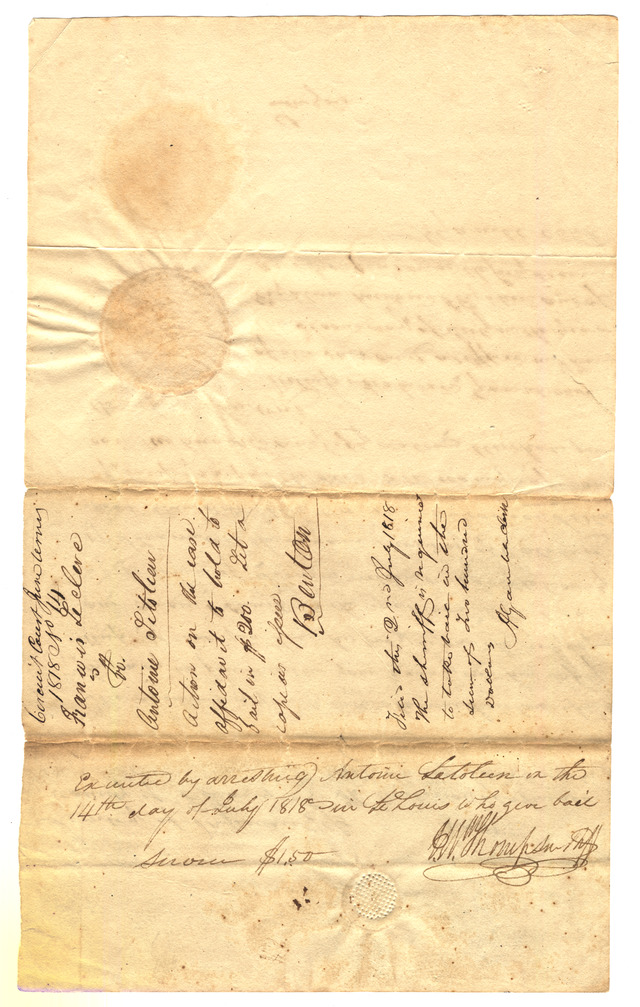 Circuit Court June term
1818 No 74
Francois Leclerc
vs
Antoine Litolean
Action on the case
affidavit to hold to
bail in $200. Let a
capias issue
Benton
Filed this 2nd July 1818
The sheriff is required
to take bail in the
sum of Two hundred
Dollars
Executed by arresting Antoine Latoleen on the
14th day of July 1818 in St Louis who give bail
Service $1.50
Thompson Shff